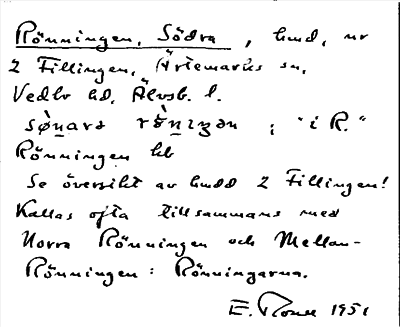 Rönningen, Södra, hmd, nr
2 Fillingen, Ärtemarks sn,
Vedbo hd, Älvsb. l.
sø̀narə rö̀nıŋən ; "i R."
Rönningen lh
Se översikt av hmdd 2 Fillingen!
Kallas ofta tillsammans med
Norra Rönningen och Mellan-
Rönningen: Rönningarna.
E. 1951